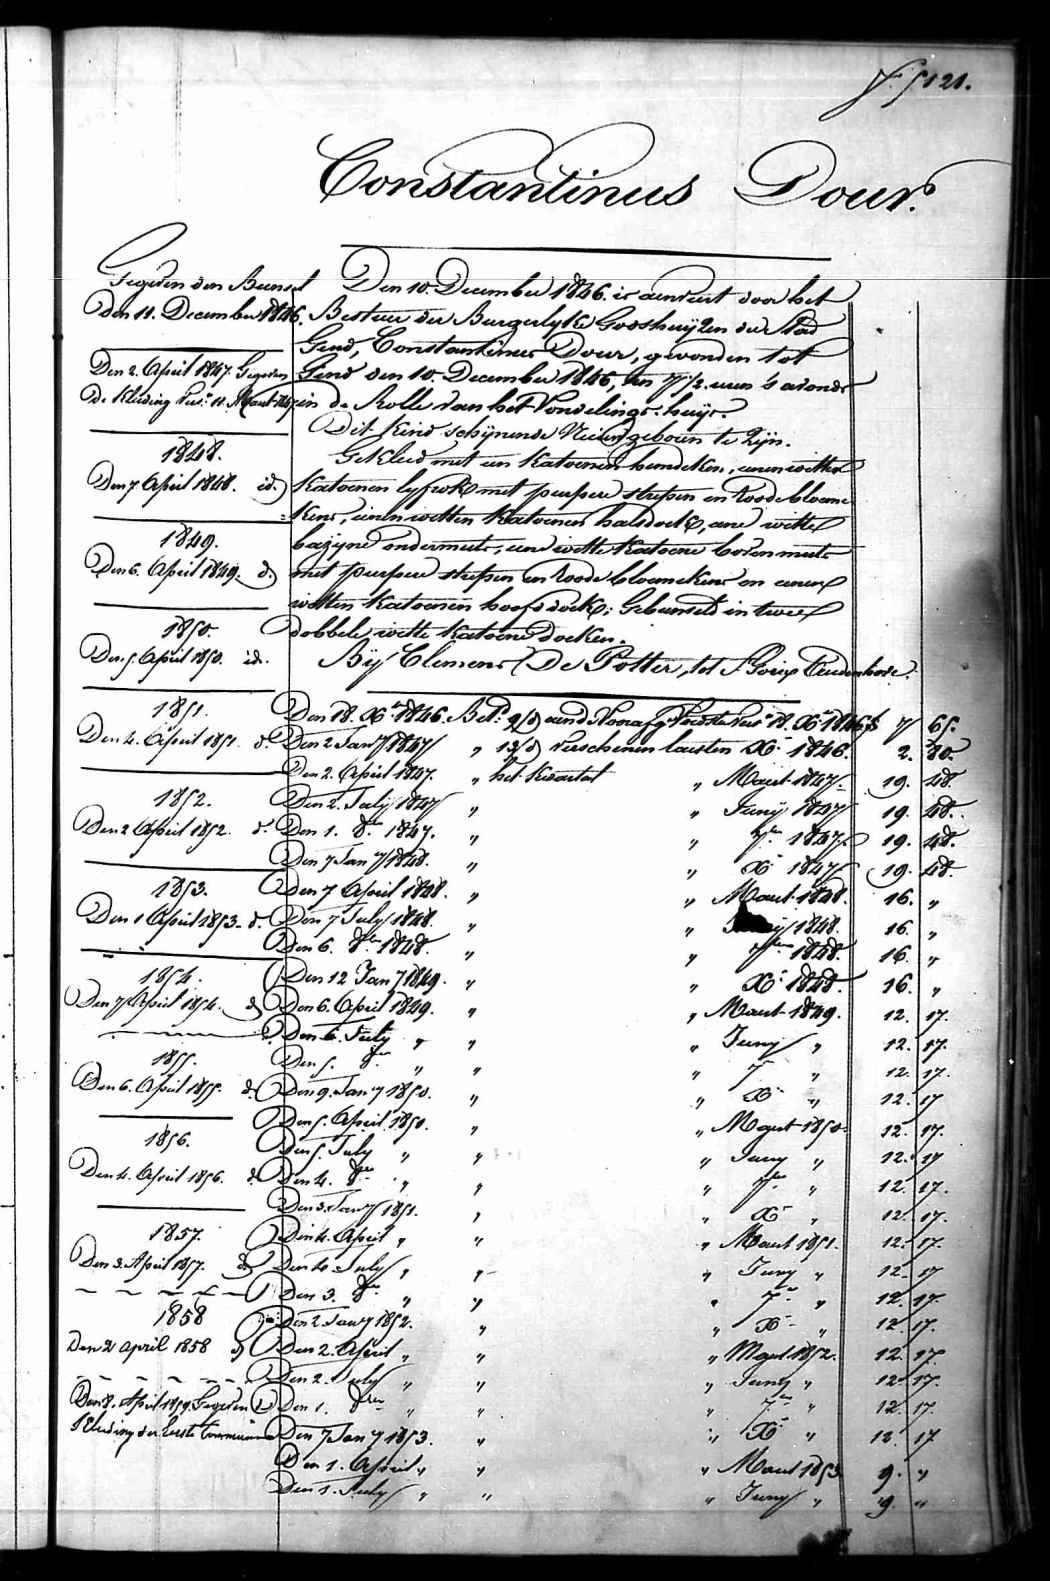 f° 5121.
Constantinus Dour.
Gegeven den Bunsel
den 11. December 1846.
Den 2. April 1847. Gegeven
de Kleding vers. 11. Maart 1847
1848.
Den 7 April 1848. id.
1849.
Den 6. April 1849. d.
1850.
Den 5. April 1850. id.
1851.
Den 4. April 1851. d.
1852.
Den 2 April 1852. d.
1853.
Den 1 April 1853. d.
1854.
Den 7 April 1854. d.
1855.
Den 6. April 1855. d.
1856.
Den 4. April 1856. d.
1857.
Den 3. April 1857. d.
1858
Den 2 april 1858 d
Den 8. April 1859. Gegeven
Kleding der Eerste Communie
Den 10. December 1846. is aenveert door het
Bestuer der Burgerlyke Godshuyzen der Stad
Gend, Constantinus Dour, gevonden tot
Gend den 10. December 1846, ten 7 1/2. uren 's avonds
in de Rolle van het Vondelings-huys.
Dit kind schynende Nieuwgeboren te zyn.
Gekleed met een katoenen hemdeken, eenen witten
katoenen lyfrok met purpere strepen en roode bloeme
=kens, eenen witten katoenen halsdoek, eene witte
bazyne ondermuts, eene witte katoene bovenmuts
met purpere strepen en roode bloemekens en eenen
witten katoenen hoofddoek; Gebunseld in twee
dobbele witte katoene doeken.
Bij Clemens De Potter, tot St Gorix Oudenhove.
Den 18. Xr 1846. Bet. 9/d aend Voorafg Voedster vers 18. Xr 1846 f 7 65.
Den 2 Jany 1847 " 13/d verschenen laesten Xr 1846. 2. 80.
Den 2. April 1847. " het kwartael " Maart 1847. 19. 48.
Den 2. July 1847 " " Juny 1847 19. 48.
Den 1. 8r 1847. " " 7r 1847 19. 48.
Den 7 Jany 1848. " " Xr 1847 19. 48.
Den 7 April 1848. " " Maart 1848. 16. "
Den 7 July 1848. " " Juny 1848. 16. "
Den 6. 8r 1848. " " 7r 1848. 16. "
Den 12 Jany 1849. " " Xr 1848. 16. "
Den 6. April 1849. " " Maart 1849. 12. 17.
Den 6. July " " " Juny " 12. 17.
Den 5. 8r " " " 7r " 12. 17.
Den 9. Jany 1850. " " Xr " 12. 17
Den 5. April. 1850. " " Maart 1850. 12. 17.
Den 5. July " " " Juny " 12. 17
Den 4. 8r " " " 7r " 12. 17.
Den 3. Jany 1851. " " Xr " 12. 17.
Den 4. April " " " Maart 1851. 12. 17.
Den 4. July " " " Juny " 12. 17
Den 3. 8r " " " 7r " 12. 17.
Den 2 Jany 1852. " " Xr " 12. 17.
Den 2. April " " " Maart 1852. 12. 17.
Den 2. July " " " Juny " 12. 17.
Den 1. 8r " " " 7r " 12. 17.
Den 7 Jany 1853. " " Xr " 12. 17
Den 1. April " " " Maart 1853 9. "
Den 1. July " " " Juny " 9. "